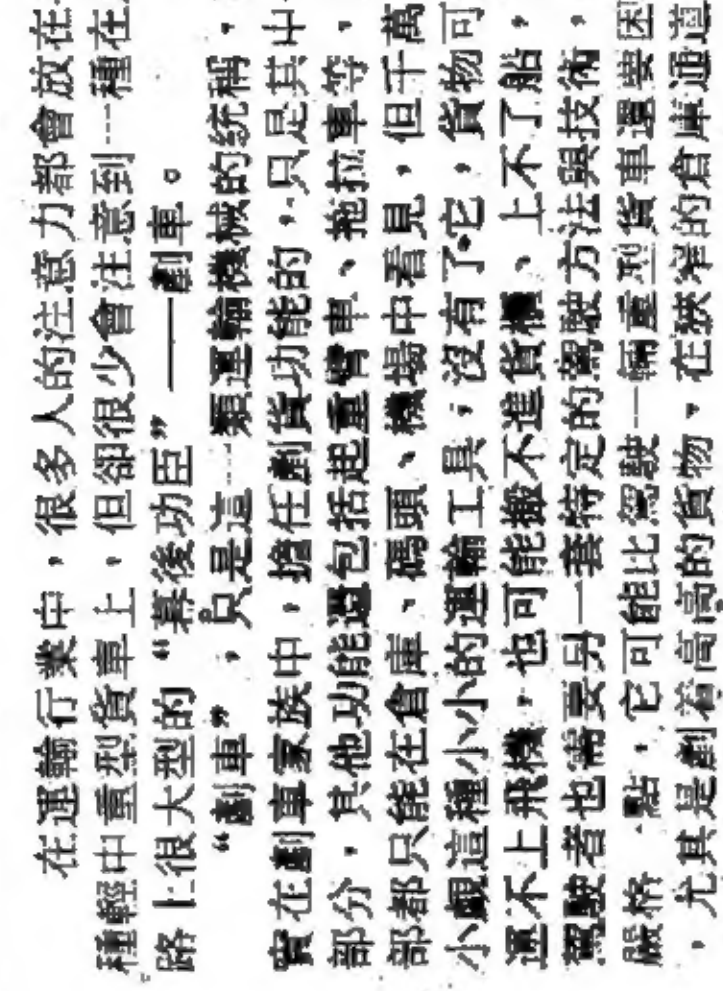 在運輸行業中，很多人的注意力都會放在
種輕中重型貨車上，但卻很少會注意到一種在
路上很大型的“幕後功臣”——剷車。
“剷車”，只是這一類運輸機械的统稱，
實在剷車家族中，擔任剷貨功能的，只是其中
部分，其他功能還包括起重臂車、拖拉車等，
部都只能在倉庫、碼頭、機場中看見，但千萬
小覷這種小小的運輸工具；沒有了它，貨物可
運不上飛機，也可能搬不進貨櫃、上不了船，
駕駛者也需要另一套特定的駕駛方法與技術。
嚴格一點，它可能比駕駛一輛重型貨車還要困
，尤其是剷着高高的貨物，在狹窄的倉庫通道